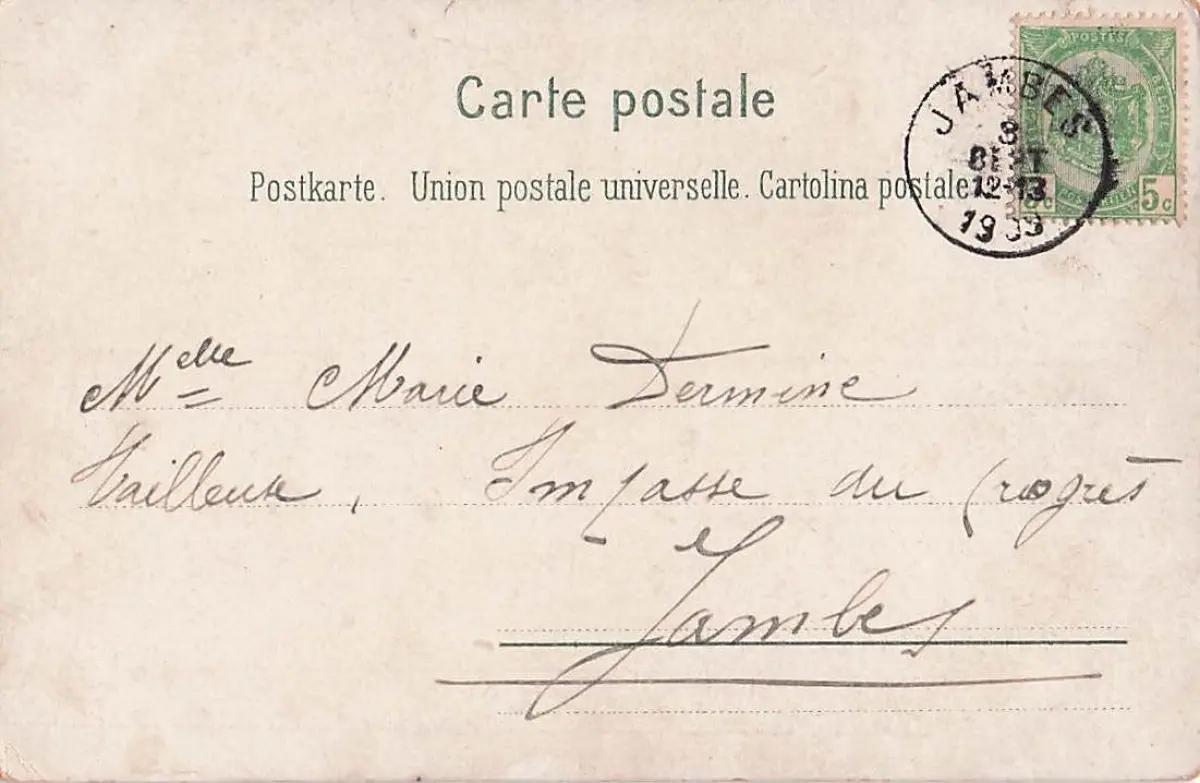 Carte postale
Postkarte. Union postale universelle. Cartolina postale
POSTES
5c
JAMBES
8
SEPT
12-13
Melle Marie Dermine
Tailleuse, Impasse du progrès
Jambes